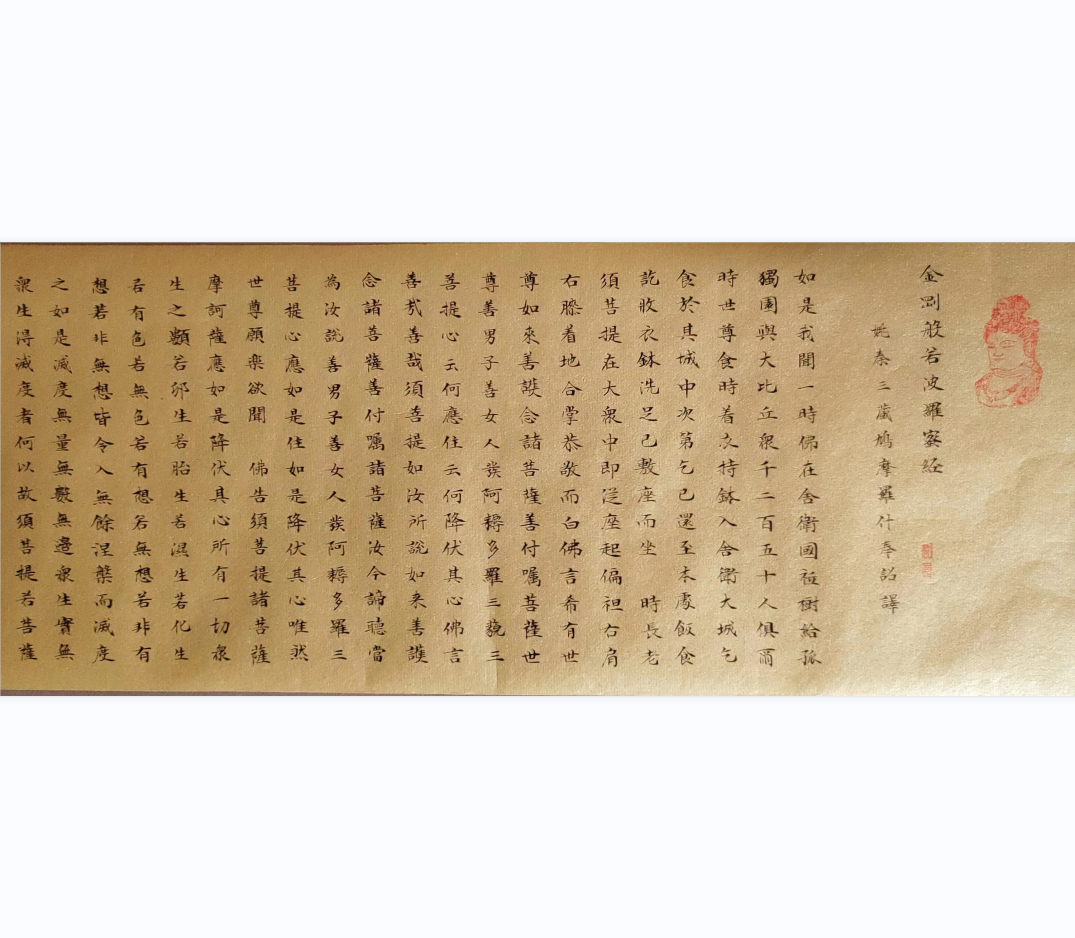 金剛般若波羅蜜経
姚秦三蔵鳩摩羅什奉詔譯
如是我聞一時佛在舍衛國祇樹給孤
獨園與大比丘衆千二百五十人俱爾
時世尊食時着衣持鉢入舍衛大城乞
食於其城中次第乞已還至本處飯食
訖收衣鉢洗足已敷座而坐 時長老
須菩提在大衆中即従座起偏袒右肩
右膝着地合掌恭敬而白佛言希有世
尊如來善護念諸菩薩善付嘱菩薩世
尊善男子善女人発阿耨多羅三藐三
菩提心云何應住云何降伏其心佛言
善哉善哉須菩提如汝所說如来善護
念諸菩薩善付嘱諸菩薩汝今諦聴當
為汝說善男子善女人発阿耨多羅三
菩提心應如是住如是降伏其心唯然
世尊願楽欲聞 佛告須菩提諸菩薩
摩訶薩應如是降伏其心所有一切衆
生之類若卵生若胎生若濕生若化生
若有色若無色若有想若無想若非有
想若非無想皆令入無餘涅槃而滅度
之如是滅度無量無數無邊衆生實無
衆生得滅度者何以故須菩提若菩薩